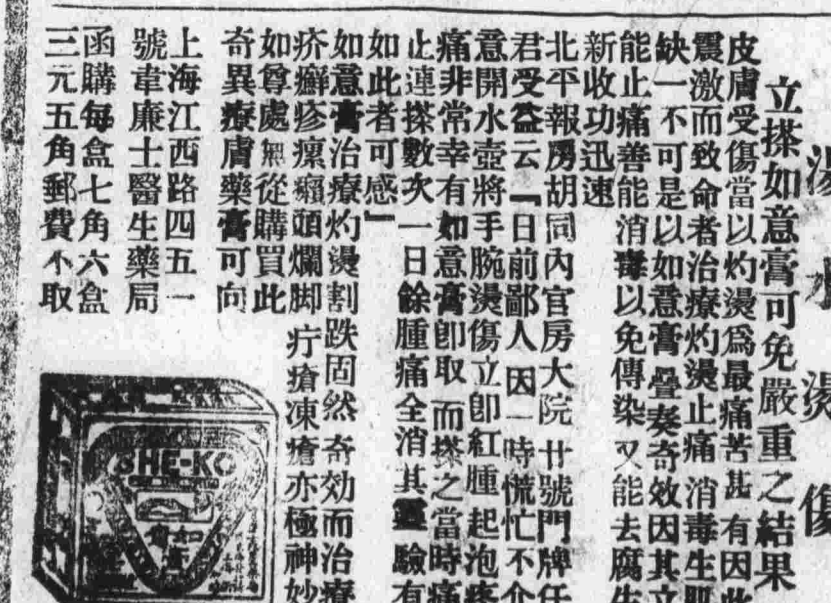 湯水燙傷
立搽如意膏可免嚴重之結果
皮膚受傷當以灼燙爲最痛苦甚有因此
震激而致命者治療灼燙止痛消毒生肌
缺一不可是以如意膏疊奏奇效因其立
能止痛善能消毒以免傳染又能去腐生
新收功迅速
北平報房胡同內官房大院廿號門牌任
君受益云『日前鄙人因一時慌忙不介
意開水壺將手腕燙傷立卽紅腫起泡疼
痛非常幸有如意膏卽取而搽之當時痛
止連搽數次一日餘腫痛全消其靈驗有
如此者可感』
如意膏治療灼燙割跌固然奇効而治療
疥癬疹瘰癩頭爛脚疔瘡凍瘡亦極神妙
如尊處無從購買此
奇異療膚藥膏可向
上海江西路四五一
號韋廉士醫生藥局
函購每盒七角六盒
三元五角郵費不取
SHE-KO
如意膏